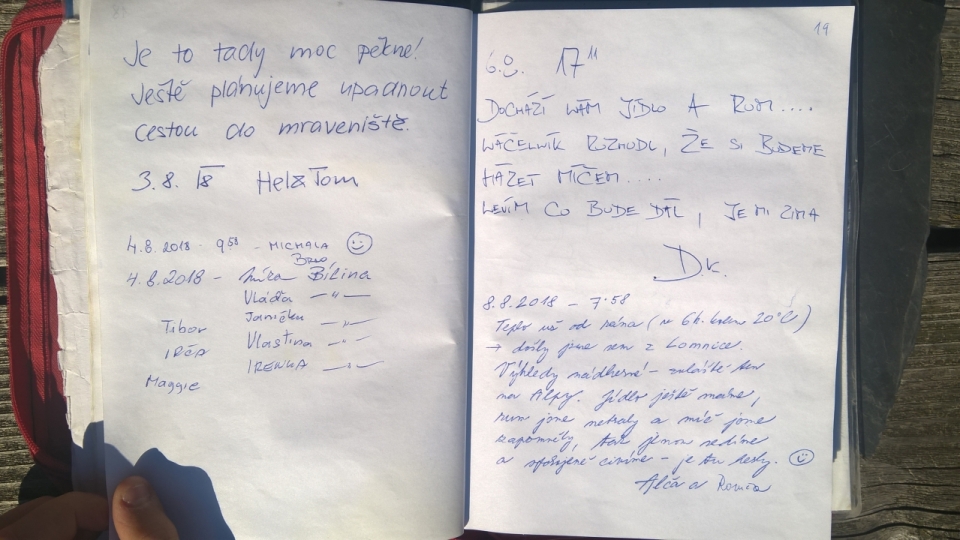 Je to tady moc pěkné!
Ještě plánujeme upadnout
cestou do mraveniště.
3.8. 18 Hel&Tom
4.8.2018 - 9 58 - MICHALA
Brno
4.8.2018 - Mirka Bílina
Vláďa —"—
Janička —"—
Tibor
Vlastina —"—
IRČA
IRENKA —"—
Maggie
19
6.8. 17 11
DOCHÁZÍ NÁM JÍDLO A RUM....
NÁČELNÍK ROZHODL, ŽE SI BUDEME
HÁZET MÍČEM....
NEVÍM CO BUDE DÁL, JE MI ZIMA
D.K.
8.8.2018 - 7:58
Teplo už od rána (v 6h. kolem 20°C)
→ došly jsme sem z Lomnice.
Výhledy nádherné -
na Alpy. Jídlo ještě máme,
rum jsme nebraly a míč jsme
zapomněly, tak jenom sedíme
a spokojeně čumíme - je tu hezky. ☺
Alča a Romča